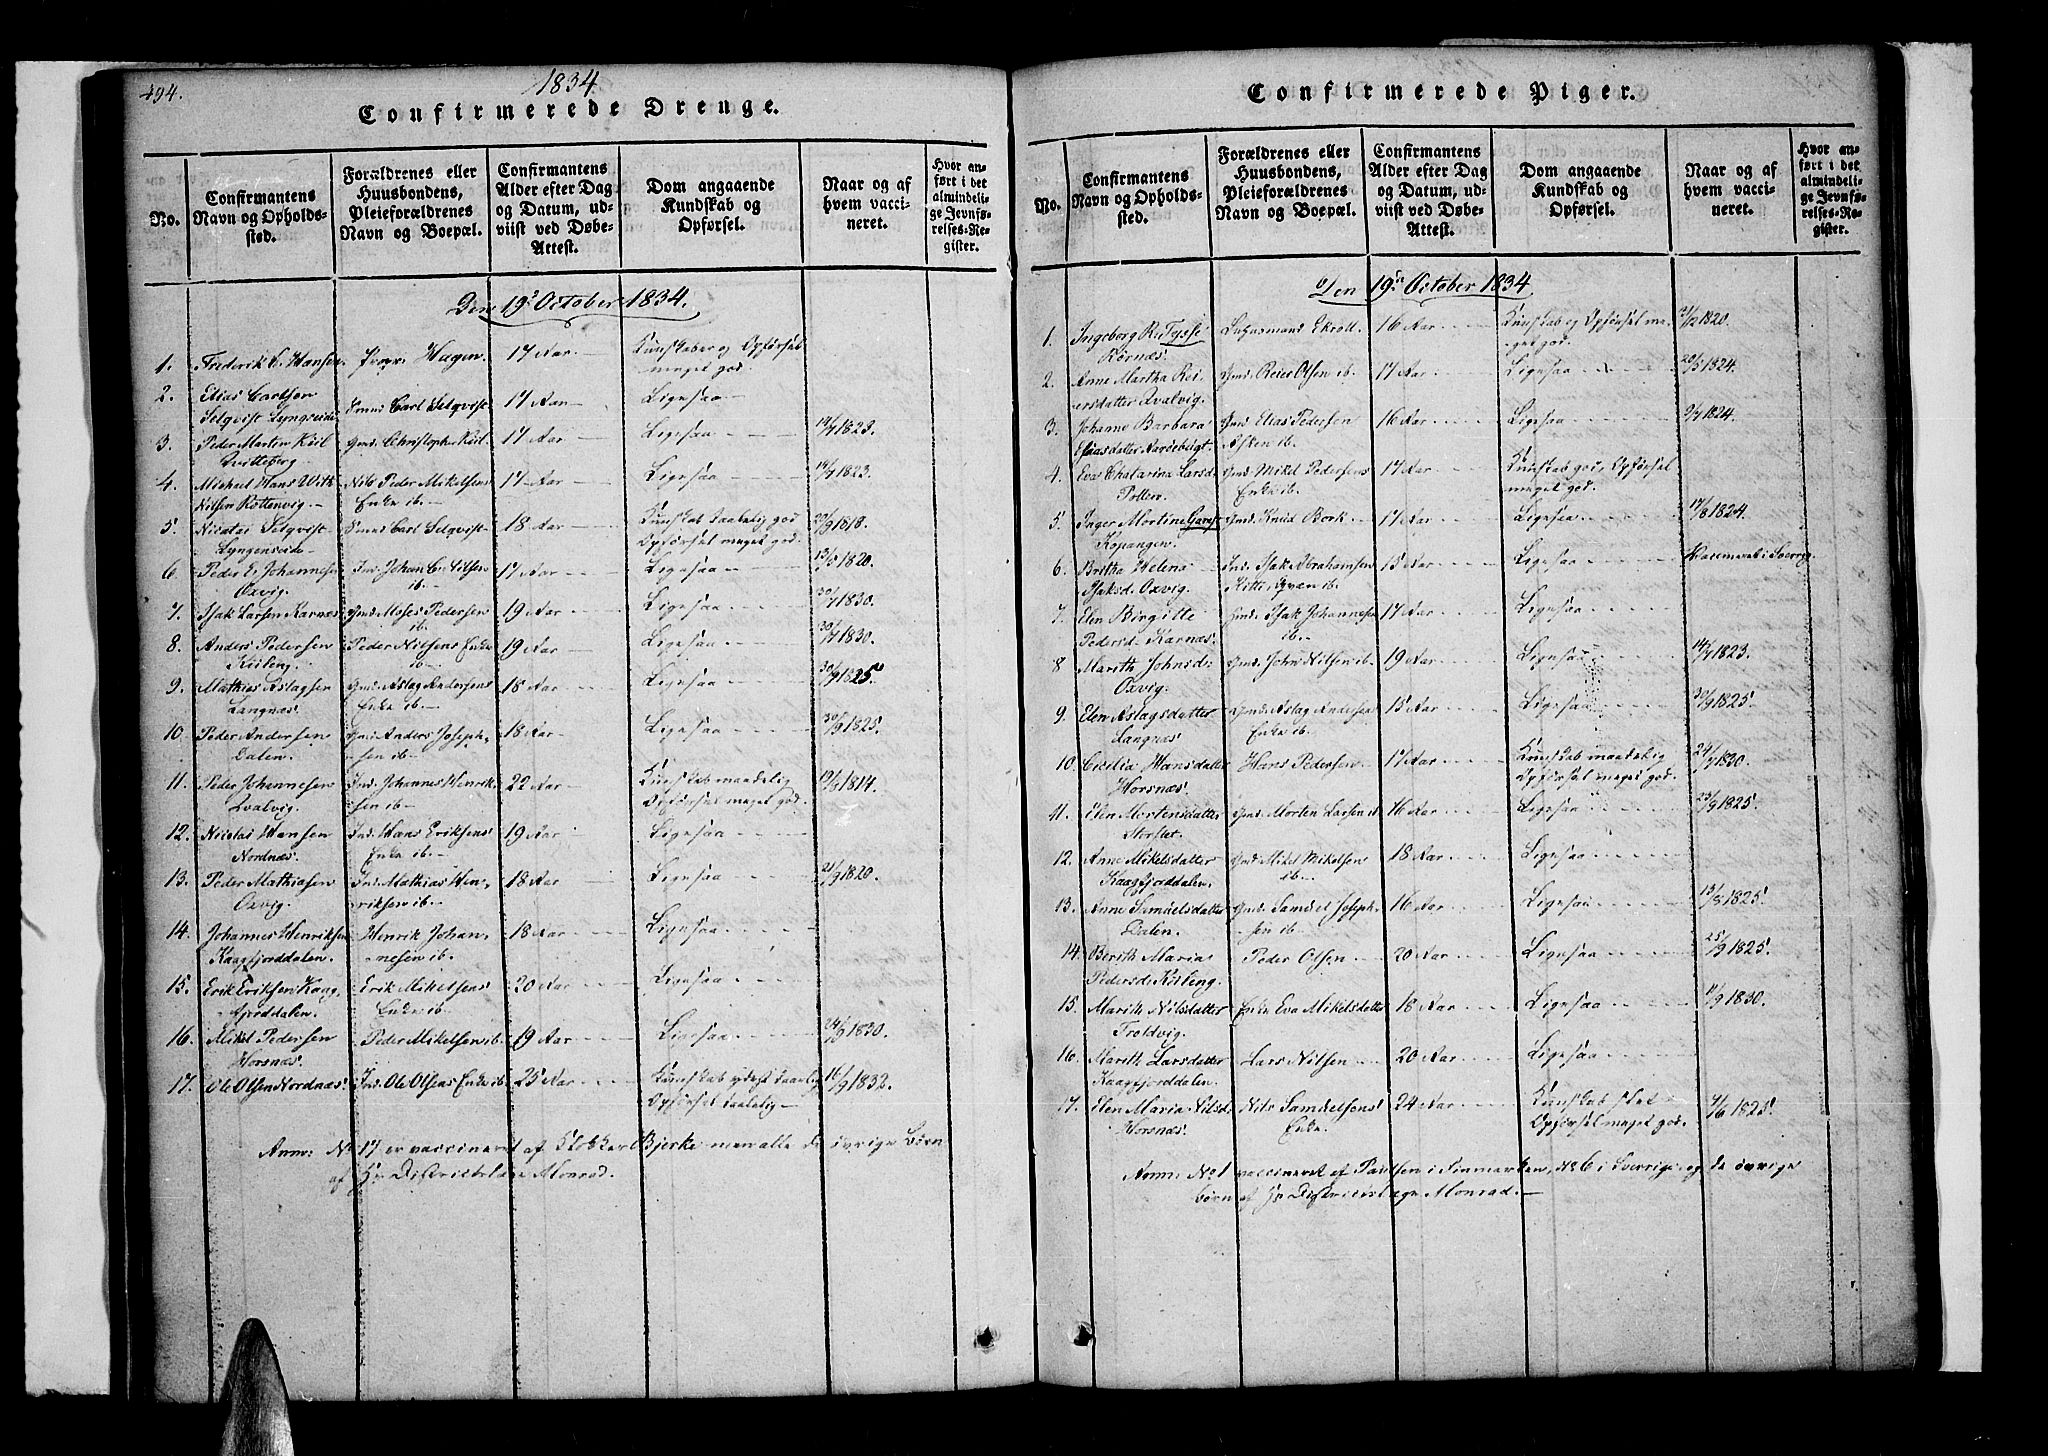 494.
1834
Confirmerede Drenge.
No.
Confirmantens Navn og Opholds-sted.
Forældrenes eller Huusbondens, Pleieforældrenes Navn og Boepæl.
Confirmantens Alder efter Dag og Datum, ud-viist ved Døbe-Attest.
Dom angaaende Kundskab og Opførsel.
Naar og af hvem vacci-neret.
Hvor an-ført i det almindeli-ge Jevnfø-relses-Re-gister.
Den 19de October 1834.
1. Frederik C. Hansen Hagen 17 Aar Kundskaber og Opførsel
meget god.
2. Elias Carlsen Carl Selqvist 17 Aar Ligesaa
Selqvist Lyngseidet
3. Peder Morten Kiil Gmd. Christoph. Kiil 17 Aar Ligesaa 1823.
Qvitteberg
4. Michael Hans With Peder Mikelsens 17 Aar Ligesaa 1823.
Nilsen Rottenvig Enke ib.
5. Nicolai Selqvist Carl Selqvist 18 Aar Kundskab taalelig god 1818.
Lyngenseide Opførsel meget god.
6. Peder E. Johannesen Ind. Johan C. Nilsen 17 Aar Ligesaa 13/5 1820.
Oxvig. ib.
7. Isak Larsen Karnæs Gmd. Moses Pedersen 19 Aar Ligesaa 30/7 1830.
ib.
8. Anders Pedersen Peder Nilsens Enke 19 Aar Ligesaa 30/7 1830.
Kiileng. ib
9. Mathias Aslagsen Gmd. Aslag Andersens 18 Aar Ligesaa 30/9 1825.
Langnæs. Enke ib.
10. Peder Andersen Gmd. Anders Joseph- 18 Aar Ligesaa 30/9 1825.
Dalen sen ib.
11. Peder Johannesen Ind. Johannes Henrik- 22 Aar Kundskab maadelig 1814.
Qvalvig. sen ib. Opførsel meget god.
12. Nicolas Hansen Ind. Hans Eriksens 19 Aar Ligesaa
Nordnæs. Enke ib.
13. Peder Mathiasen Ind. Mathias Hen- 18 Aar Ligesaa 21/9 1820.
Oxvig. riksen ib.
14. Johannes Henriksen Henrik Johan- 18 Aar Ligesaa
Kaagfjorddalen. nesen ib.
15. Erik Eriksen Kaag- Erik Mikelsens 20 Aar Ligesaa
fjorddalen. Enke ib.
16. Mikel Pedersen Peder Mikelsen ib. 19 Aar Ligesaa 24/9 1830.
Horsnæs.
17. Ole Olsen Nordnæs Ind. Ole Olsens Enke ib. 25 Aar Kundskab taalelig 16/9 1832.
Opførsel taalelig
Anm: No 17 er vaccineret af Klokker Bjerke men alle de øvrige Børn
af Hr Districtslæge Monrad.
Confirmerede Piger.
No.
Confirmantens Navn og Opholds-sted.
Forældrenes eller Huusbondens, Pleieforældrenes Navn og Boepæl.
Confirmantens Alder efter Dag og Datum, ud-viist ved Døbe-Attest.
Dom angaaende Kundskab og Opførsel.
Naar og af hvem vacci-neret.
Hvor an-ført i det almindeli-ge Jevnfø-relses-Re-gister.
Den 19de October 1834
1. Ingeborg Tysse Ekroll 16 Aar Kundskab og Opførsel me- 1820.
Kornæs. get god.
2. Anne Martha Rei- Gmd. Reier Olsen ib. 17 Aar Ligesaa 20/5 1824.
ersdatter Qvalvig.
3. Johanne Barbara Gmd. Elias Pedersen 16 Aar Ligesaa 9/7 1824.
Eliasdatter ib.
4. Eva Chatarina Larsd. Gmd. Mikel Pedersens 17 Aar Kundskab god, Opførsel
Pollen. Enke ib. meget god.
5. Inger Mortine Gmd. Knud Bork 17 Aar Ligesaa 17/8 1824.
Kopangen.
6. Britha Helena Ind. Isak Abrahamsen 15 Aar Ligesaa
Isaksd. Oxvig. ib.
7. Elen Birgitte Gmd. Isak Johannesen 17 Aar Ligesaa
Pedersd. Karnæs. ib.
8. Marith Johnsd. Gmd. John Nilsen ib. 19 Aar Ligesaa 14/7 1823.
Oxvig.
9. Elen Aslagsdatter Gmd. Aslag Andersens 15 Aar Ligesaa 30/9 1825.
Langnæs. Enke ib.
10. Cicilia Hansdatter Hans Pedersen 17 Aar Kundskab maadelig 24/7 1830.
Horsnæs. Opførsel meget god.
11. Elen Mortensdatter Gmd. Morten Larsen ib 16 Aar Ligesaa 23/9 1825.
Storslet.
12. Anne Mikelsdatter Gmd. Mikel Mikelsen 18 Aar Ligesaa
Kaagfjorddalen. ib.
13. Anne Samuelsdatter Gmd. Samuel Joseph- 16 Aar Ligesaa 13/8 1825.
Dalen. sen ib.
14. Berith Maria Peder Olsen 20 Aar Ligesaa 25/9 1825.
Pedersd. Kiileng.
15. Marith Nilsdatter Enke Eva Mikelsdatter 18 Aar Ligesaa 1830.
Troldvig.
16. Marith Larsdatter Lars Nilsen 20 Aar Ligesaa
Kaagfjorddalen.
17. Elen Maria Nilsd. Nils Samuelsens 24 Aar Kundskab slet 1825.
Horsnæs. Enke. Opførsel meget god.
Anm: No 1 vaccineret af Paulsen i Finmarken, No 6 i Sverrige og de øvrige
Børn af Hr Districtslæge Monrad.